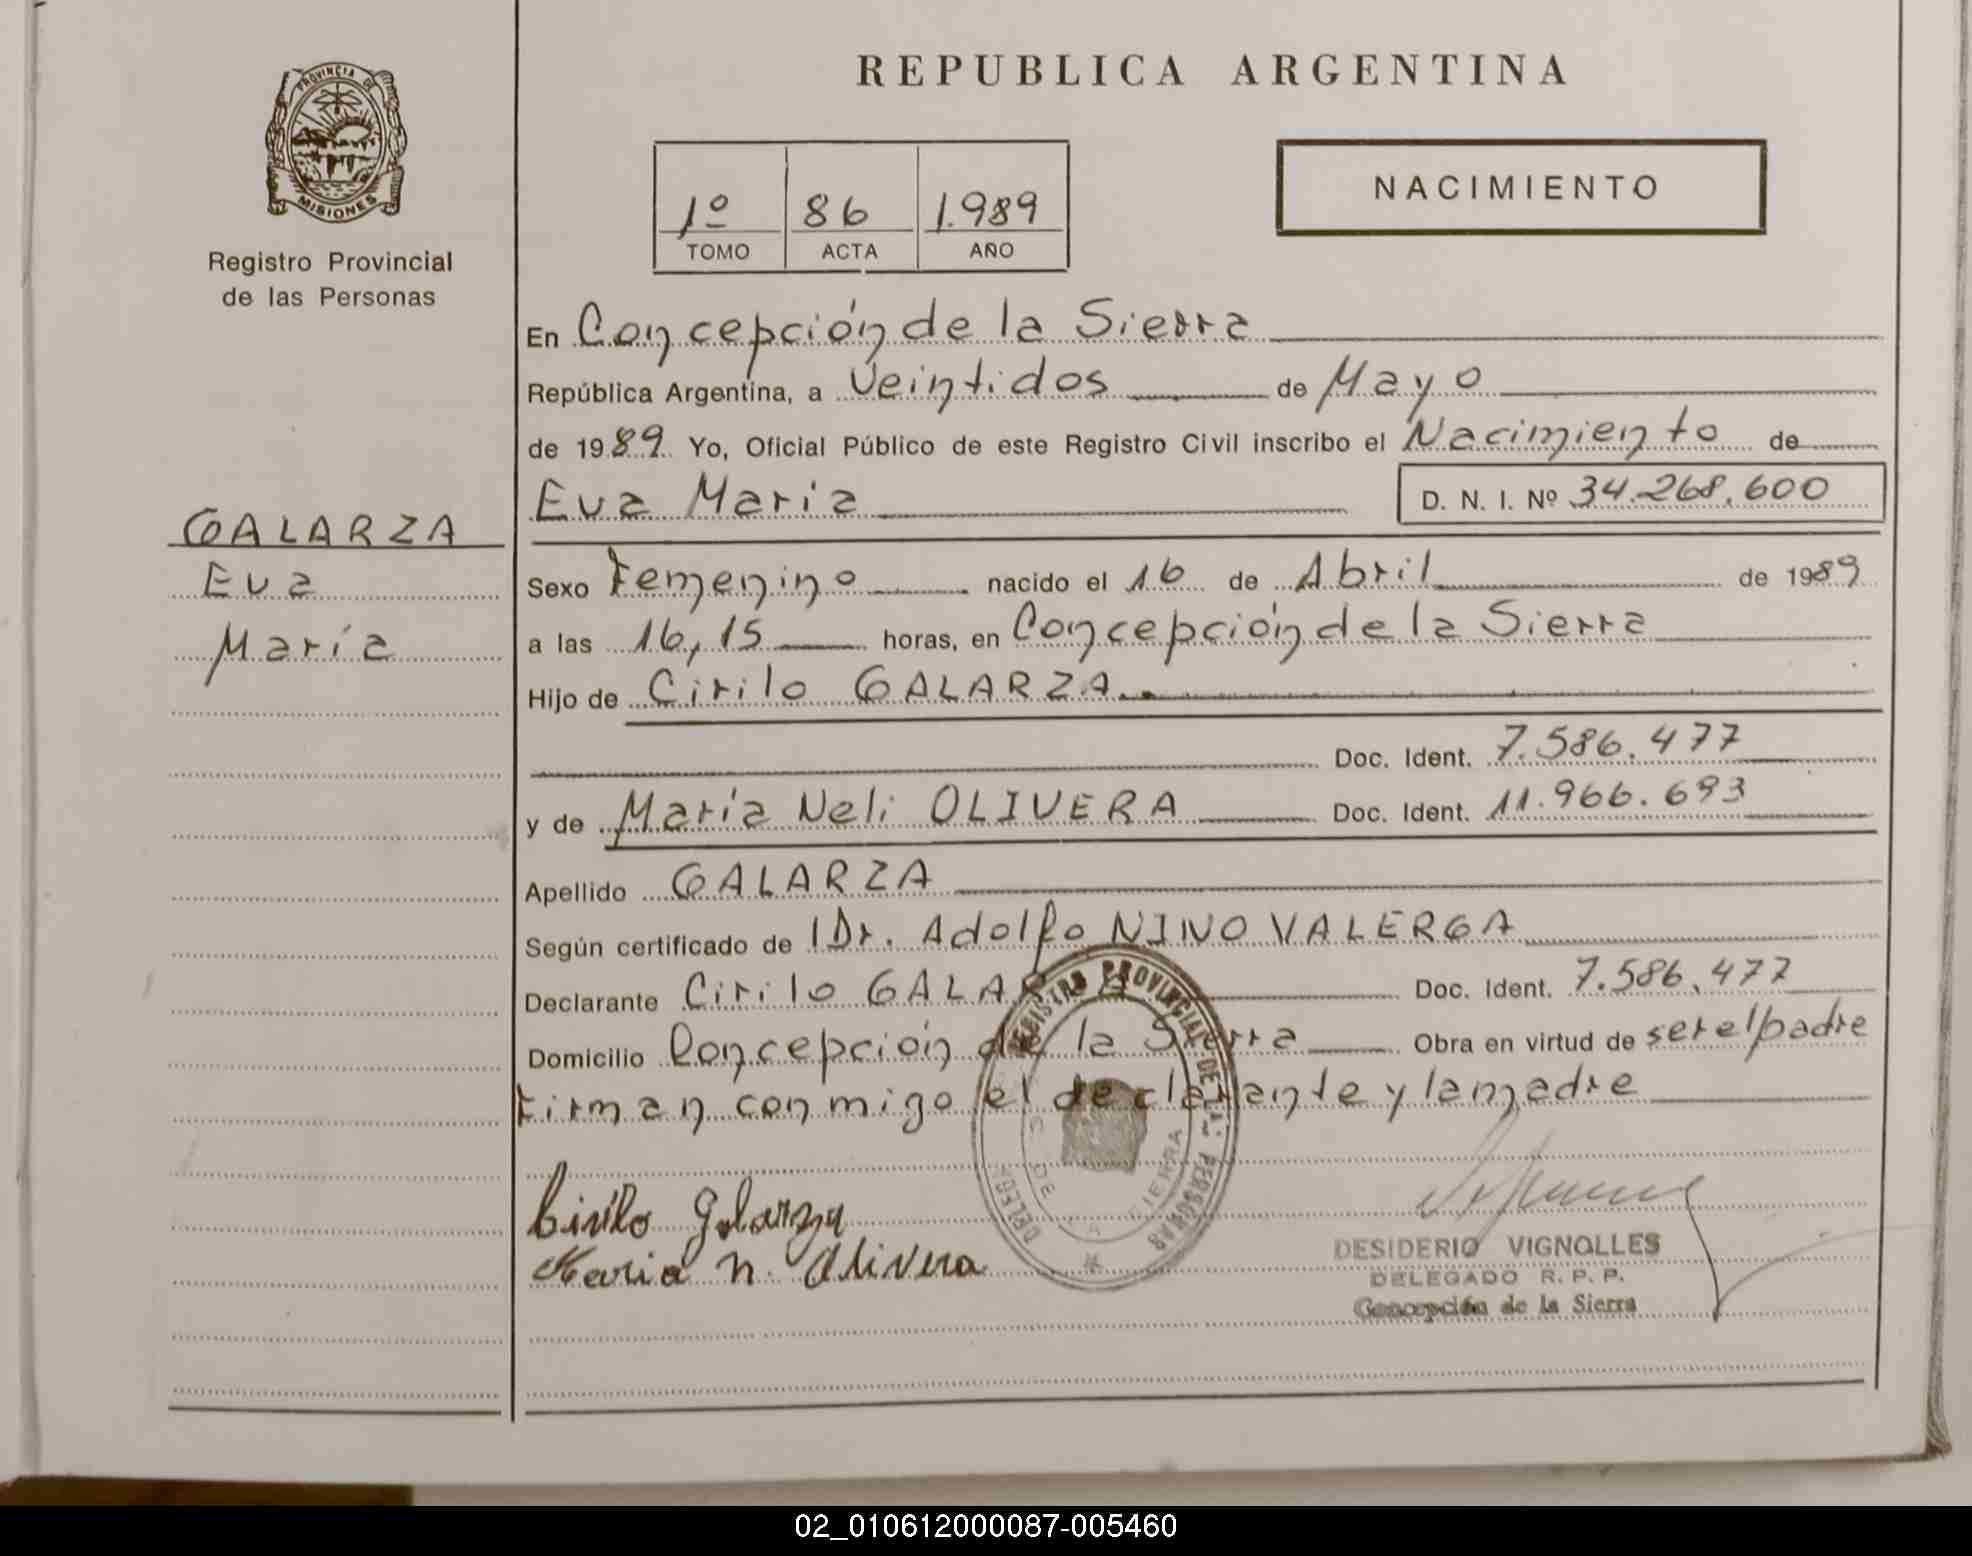 REPUBLICA ARGENTINA
PROVINCIA DE
MISIONES
Registro Provincial
de las Personas
NACIMIENTO
1º 86 1.989
TOMO ACTA AÑO
En Concepción de la Sierra
República Argentina, a Veintidos de Mayo
de 1989 Yo, Oficial Público de este Registro Civil inscribo el Nacimiento de
Eva María D. N. I. Nº 34.268.600
GALARZA
Eva
María
Sexo Femenino nacido el 16 de Abril de 1989
a las 16,15 horas, en Concepción de la Sierra
Hijo de Cirilo GALARZA.
Doc. Ident. 7.586.477
y de María Neli OLIVERA Doc. Ident. 11.966.693
Apellido GALARZA
Según certificado de Dr. Adolfo NINO VALERGA
Declarante Cirilo GALARZA Doc. Ident. 7.586.477
Domicilio Concepción de la Sierra Obra en virtud de ser el padre
Firman conmigo el declarante y la madre
REGISTRO PROVINCIAL DE LAS PERSONAS
DE LA SIERRA
Cirilo Galarza
Maria N. Olivera
DESIDERIO VIGNOLLES
DELEGADO R. P. P.
Concepción de la Sierra
02_010612000087-005460